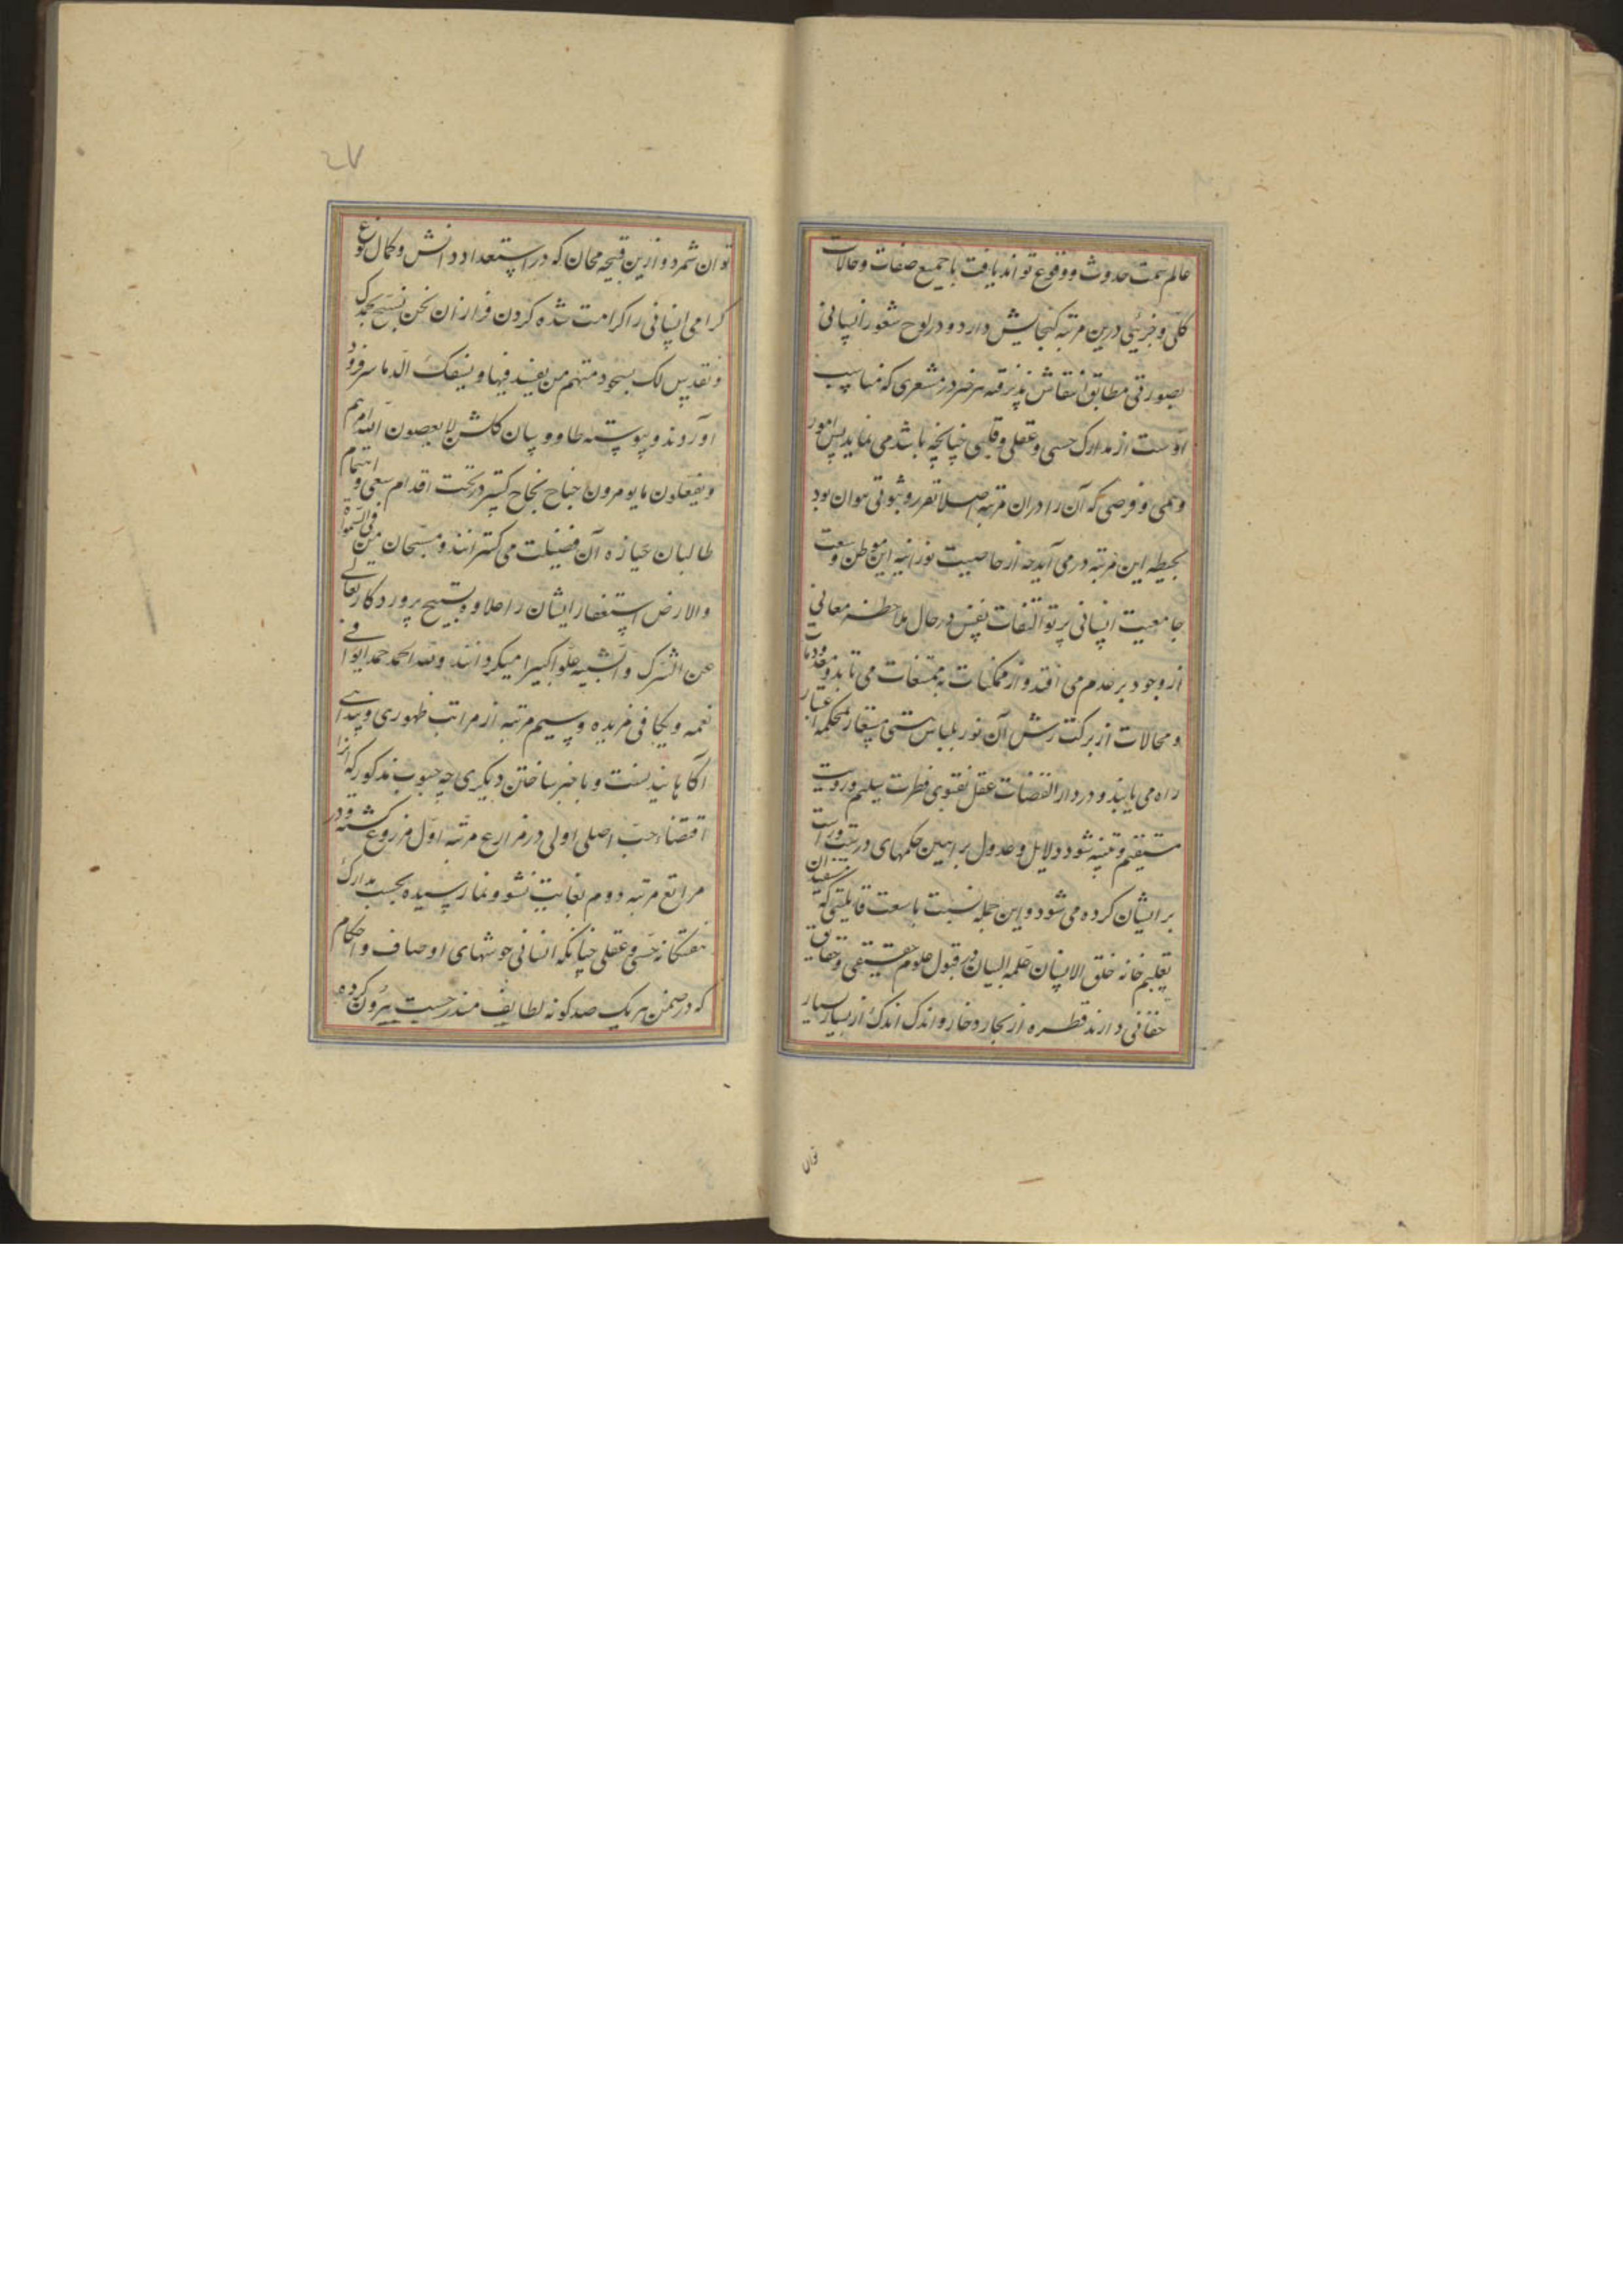 عالم سمت حدوث و وقوع تواند یافت با جمیع صفات و حالات
کلی و جزیی درین مرتبه کنجایش دارد و در لوح شعور انسانی
بصورتی مطابق انتقاش پذیرفته هر خبر در مشعری که مناسب
اوست از مدارک حسی و عقلی و قلبی چنانچه باشد می نماید پس امور
وهمی و فرضی که آن را دران مرتبه اصلا تقرر و ثبوتی نتوان بود
بحیطه این مرتبه در می آید چه از خاصیت نورانیه این موطن وسعت
جامعیت انسانی پرتو التفات نفس در حال ملاحظه معانی
از وجود بر عدم می افتد و از ممکنات به ممتنعات می تابد و معدومات
و محالات از برکت رش آن نور بلباس هستی مستعار بمحکمه اعتبار
راه می یابند و در دار القضات عقل بفتوی فطرت سلیم و رویت
مستقیم و بینه شود دلایل و عدول براهین حکمهای درست و راست
بر ایشان کرده می شود و این جمله نسبت با سعت قابلیتی که
تعلیم خانه خلق الانسان علمه البیان در قبول علوم حقیقی و حقایق
حقانی دارند قطره از بحار زخار و اندک اندک از بسیار بسیار
توان
۲۷
توان شمرد و ازین قبیحه مجان که در استعداد دانش و کمال نوع
کرامی انسانی را کرامت شده کردن فرازان نحن نسبح بحمدک
و نقدس لک بسجود متهم من یفسد فیها و یسفک الدما سر فرود
آوردند و پیوسته طاووسان کلشن لا یعصون الله ما امرهم
و یفعلون ما یومرون جناح نجاح کستر در تحت اقدام سعی و اهتمام
طالبان حیازه آن فضیلت می کسترانند و مسبحان من فی السموات
والارض استغفار ایشان را علاوه تسبیح پروردکار تعالی
عن الشرک و الشبیه علوا کبیرا میکردانند ولله الحمد حمدا یوافی
نعمه و یکافی مزیده و سیم مرتبه از مراتب ظهوری و پیدایی
آکاهانیدنست و با خبر ساختن دیکری چه حبوب مذکوره که انرا
اقتضاء حب اصلی اولی در مزارع مرتبه اول مزروع کشته و در
مراتع مرتبه دوم بغایت نشو و نما رسیده بحسب مدارک
هفتکانه حسی و عقلی چنانکه انسانی خوشهای اوصاف و احکام
که در ضمن هر یک صد کونه لطایف مندرجست بیرون کرده